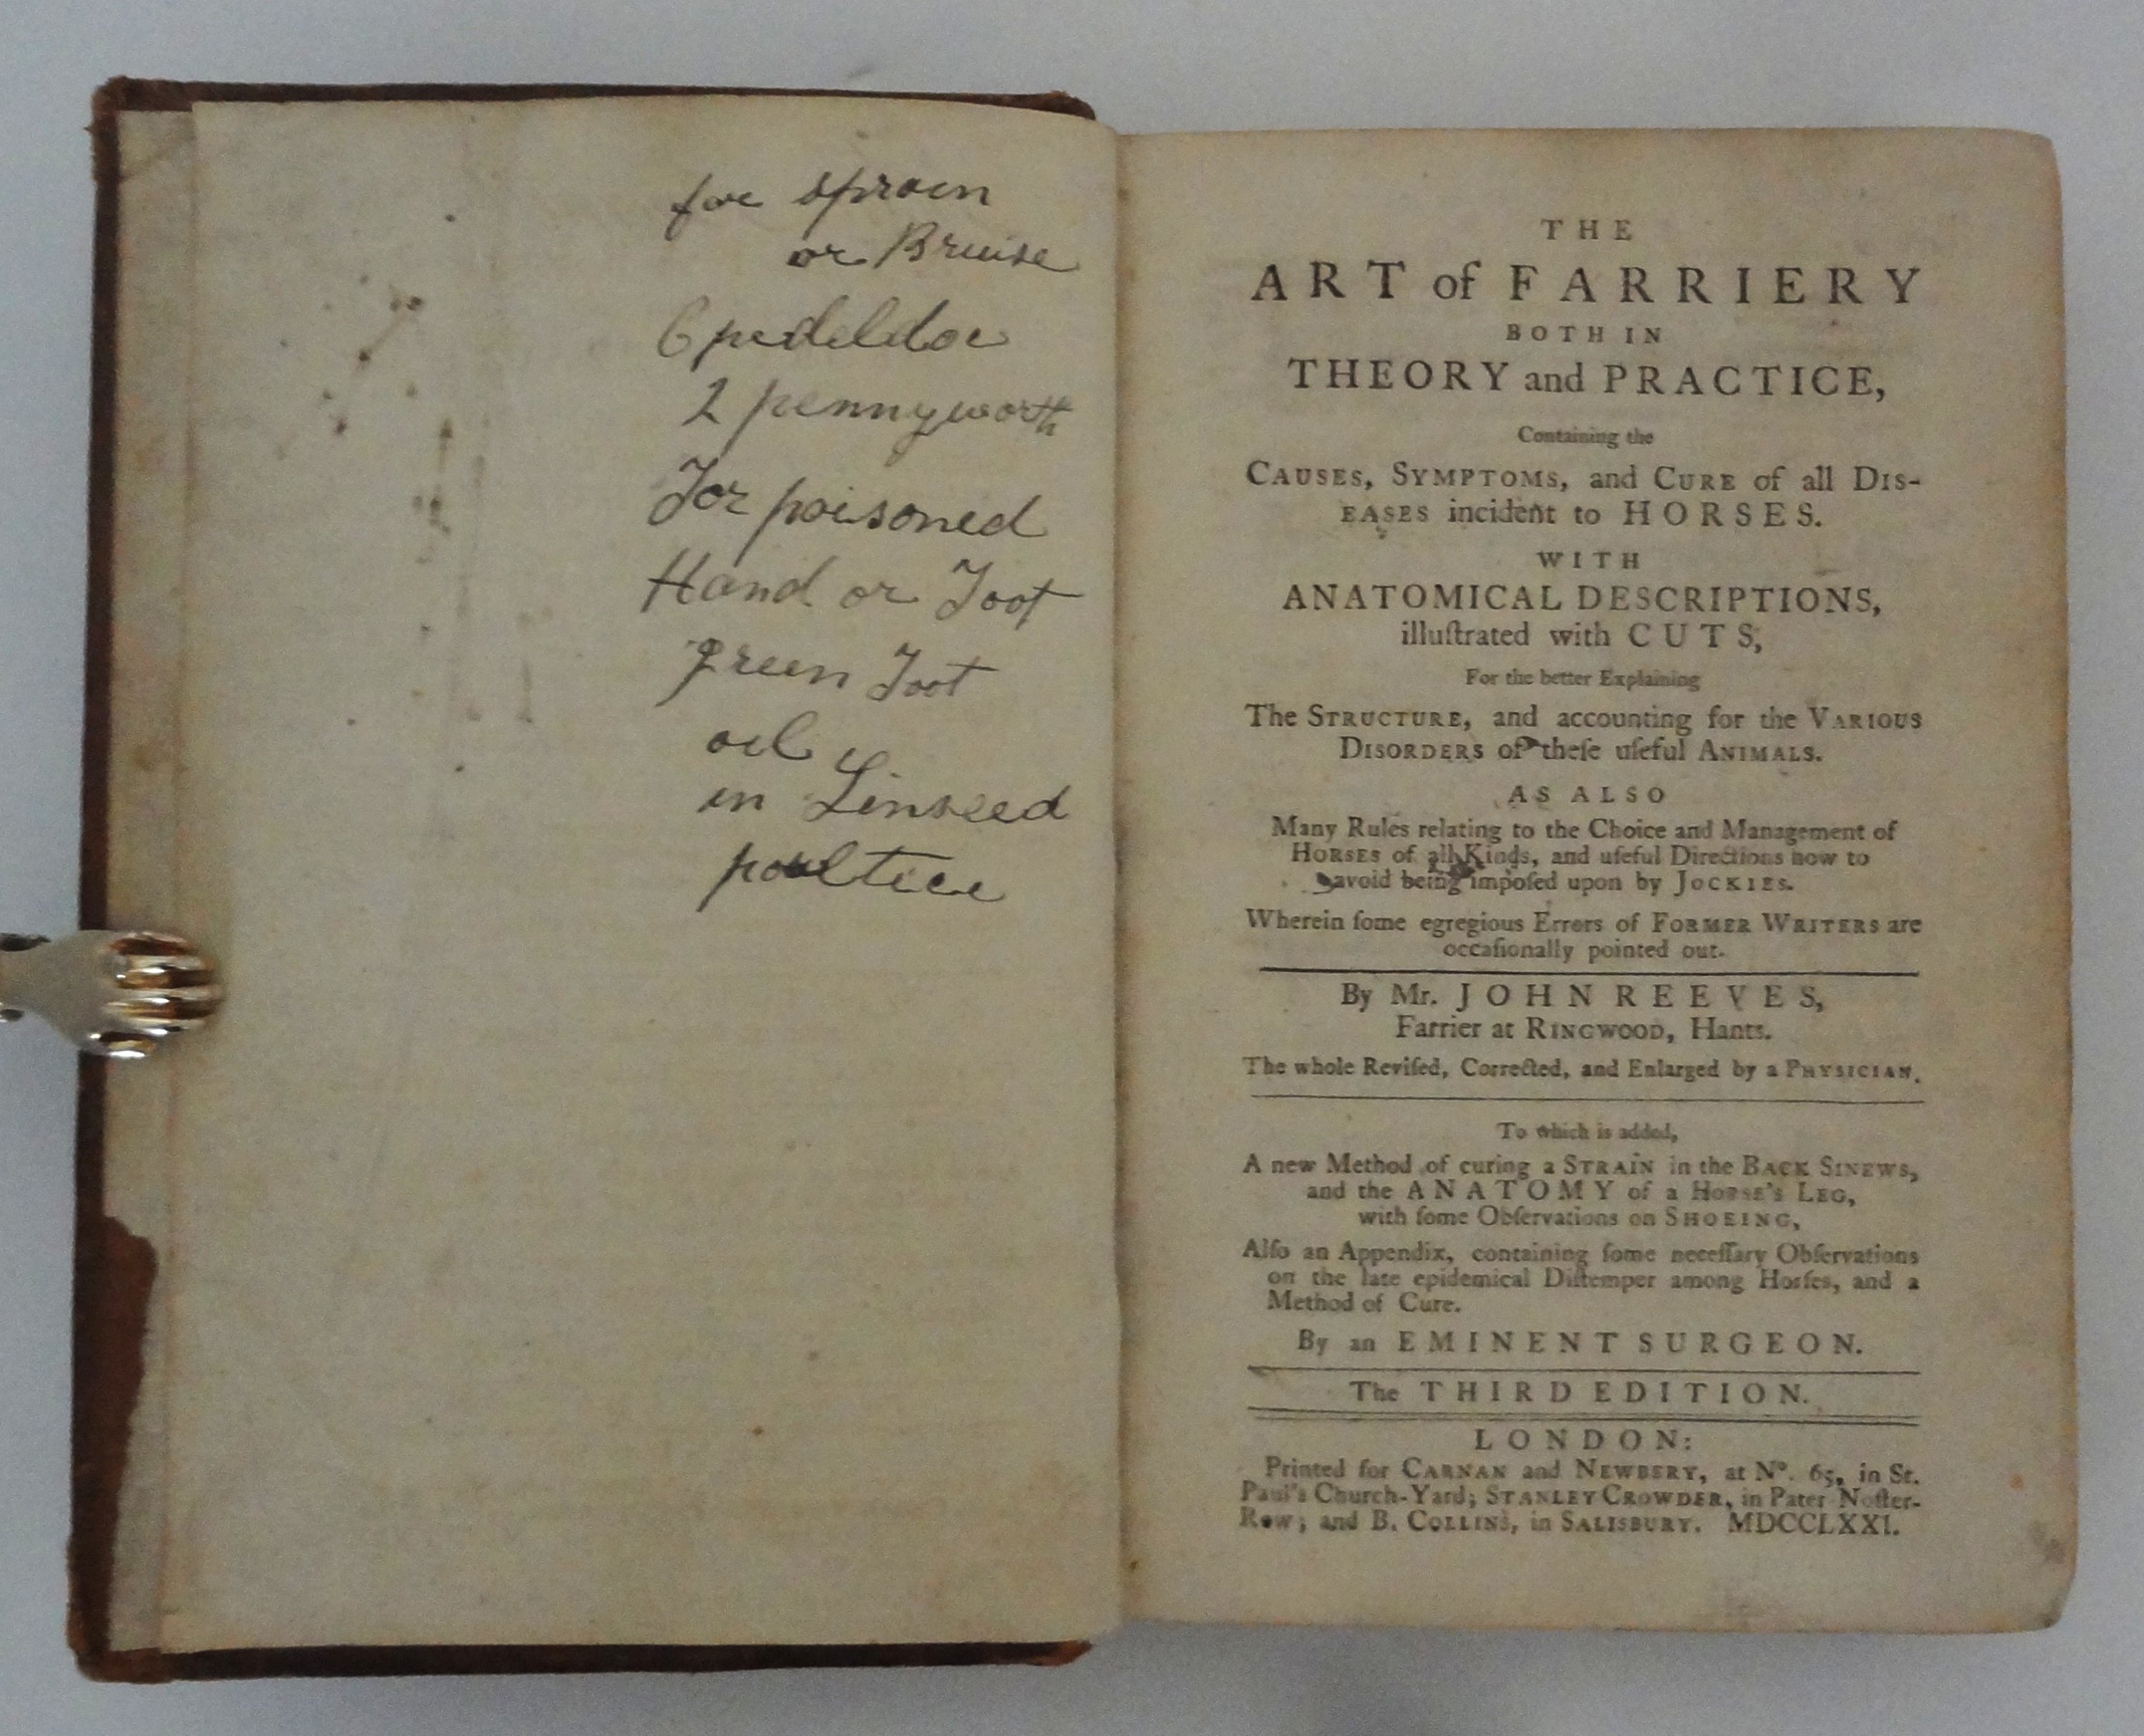 for sprain
or Bruise
Opedeldoc
2 pennyworth
For poisoned
Hand or Foot
green Foot
oil
in Linseed
poultice
THE
ART of FARRIERY
BOTH IN
THEORY and PRACTICE,
Containing the
CAUSES, SYMPTOMS, and CURE of all DIS-
EASES incident to HORSES.
WITH
ANATOMICAL DESCRIPTIONS,
illuſtrated with CUTS,
For the better Explaining
The STRUCTURE, and accounting for the VARIOUS
DISORDERS of theſe uſeful ANIMALS.
AS ALSO
Many Rules relating to the Choice and Management of
HORSES of all Kinds, and uſeful Directions how to
avoid being impoſed upon by JOCKIES.
Wherein ſome egregious Errors of FORMER WRITERS are
occaſionally pointed out.
By Mr. JOHN REEVES,
Farrier at RINGWOOD, Hants.
The whole Reviſed, Corrected, and Enlarged by a PHYSICIAN.
To which is added,
A new Method of curing a STRAIN in the BACK SINEWS,
and the ANATOMY of a HORSE's LEG,
with ſome Obſervations on SHOEING,
Alſo an Appendix, containing ſome neceſſary Obſervations
on the late epidemical Diſtemper among Horſes, and a
Method of Cure.
By an EMINENT SURGEON.
The THIRD EDITION.
LONDON:
Printed for CARNAN and NEWBERY, at Nº. 65, in St.
Paul's Church-Yard; STANLEY CROWDER, in Pater Noſter-
Row; and B. COLLINS, in SALISBURY. MDCCLXXI.